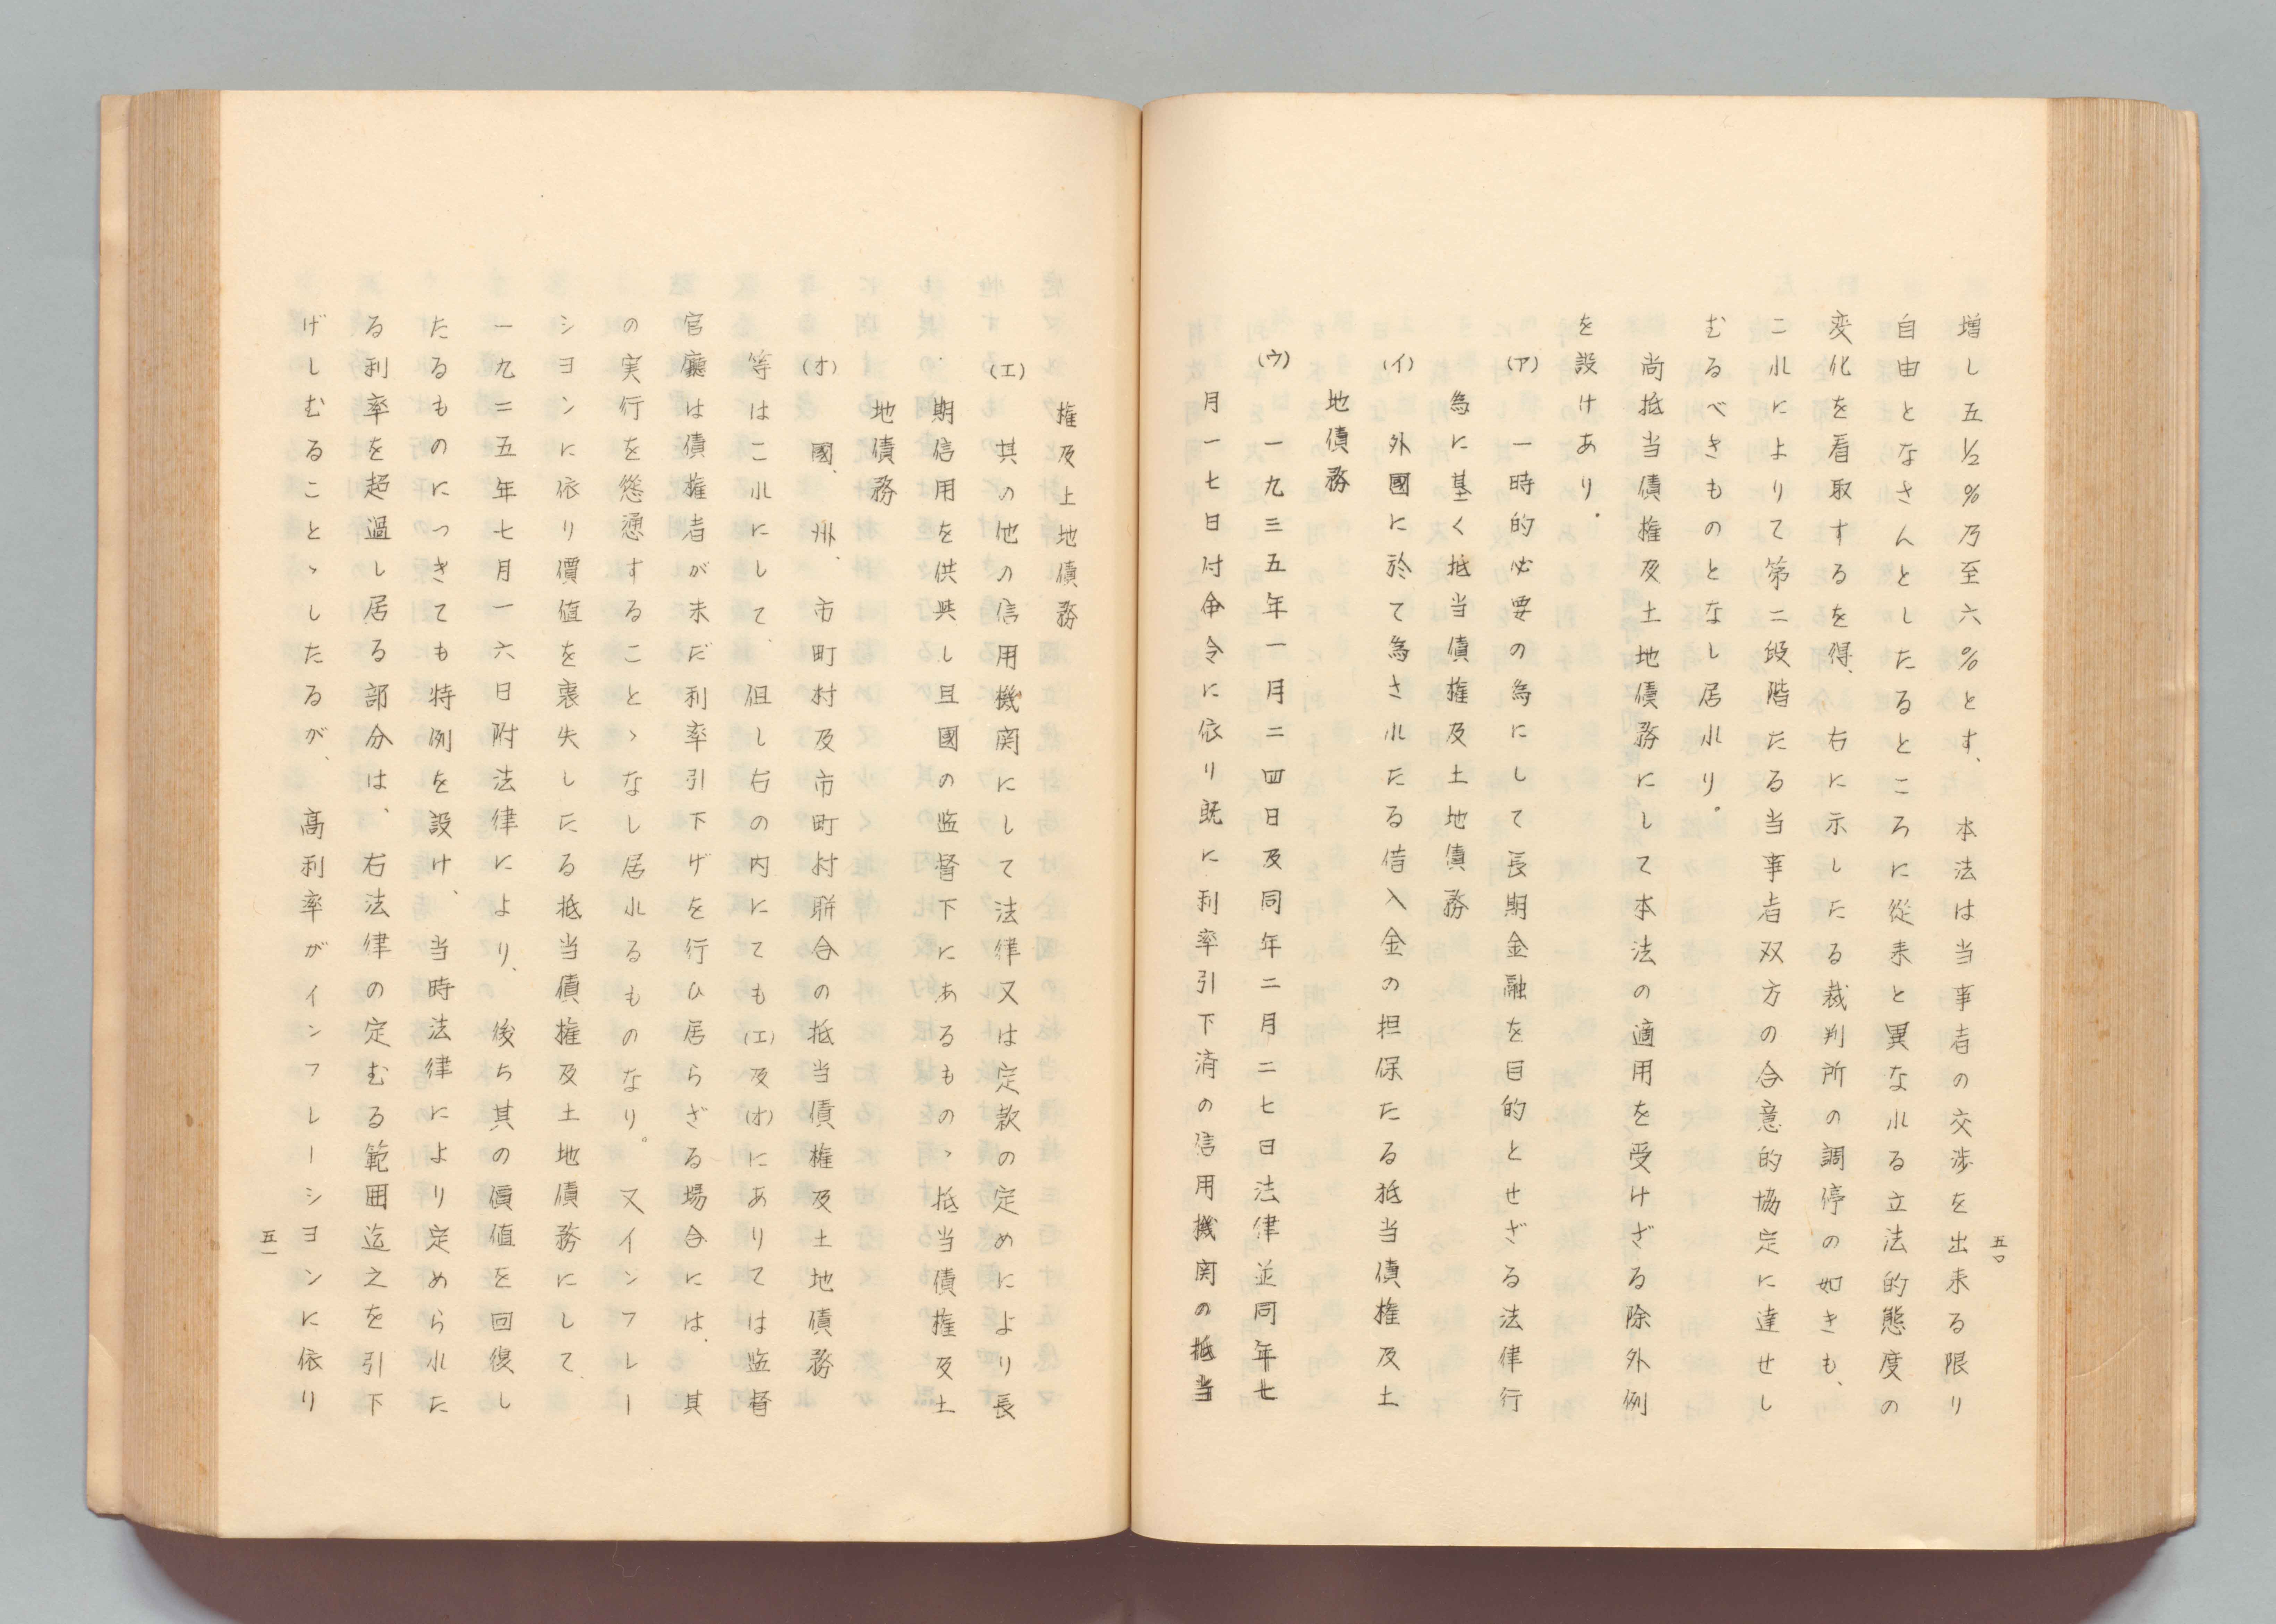 五〇
増し五½%乃至六%とす、本法は当事者の交渉を出来る限り
自由となさんとしたるところに從来と異なれる立法的態度の
変化を看取するを得、右に示したる裁判所の調停の如きも、
これによりて第二段階たる当事者双方の合意的協定に達せし
むるべきものとなし居れり。
尚抵当債権及土地債務にして本法の適用を受けざる除外例
を設けあり。
(ア)一時的必要の為にして長期金融を目的とせざる法律行
為に基く抵当債権及土地債務
(イ)外國に於て為されたる借入金の担保たる抵当債権及土
地債務
(ウ)一九三五年一月二四日及同年二月二七日法律並同年七
月一七日付命令に依り既に利率引下済の信用機関の抵当
権及上地債務
(エ)其の他の信用機関にして法律又は定款の定めにより長
期信用を供與し且國の監督下にあるもの、抵当債権及土
地債務
(オ)國、州、市町村及市町村聯合の抵当債権及土地債務
等はこれにして、但し右の内にても(エ)及(オ)にありては監督
官廳は債権者が未だ利率引下げを行ひ居らざる場合には、其
の実行を慫慂することゝなし居れるものなり。又インフレー
シヨンに依り價値を喪失したる抵当債権及土地債務にして、
一九二五年七月一六日附法律により、後ち其の價値を回復し
たるものにつきても特例を設け、当時法律により定められた
る利率を超過し居る部分は、右法律の定むる範囲迄之を引下
げしむることゝしたるが、高利率がインフレーシヨンに依り
五一